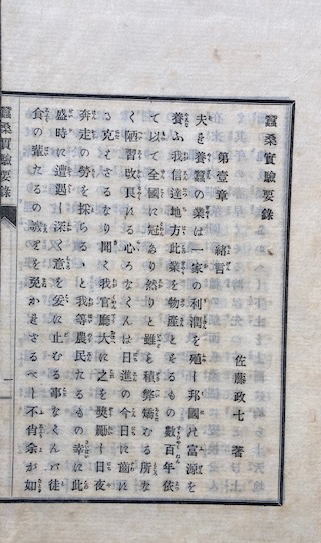 蠶桑實驗要錄
佐藤政七 著
第壹章 緒言
夫を養蠶の業は一家の利潤を殖し邦國の富源を
養ふ我信達地方此業を物産とするもの數百年依
て以て全國に冠あり然りと雖も積弊矯むる所な
く陋習改良に心ろなくんは日進の今日に商に
さ克えさるなり聞く我官廳大に之を奬勵し日夜
奔走の勞を採らるゝと我等農民たるもの幸に此
盛時に遭遇し深く意を爰に止むる事なくんバ徒
食の輩たるの誠を免かれさるべし不肖余が如
蠶桑實驗要錄
一